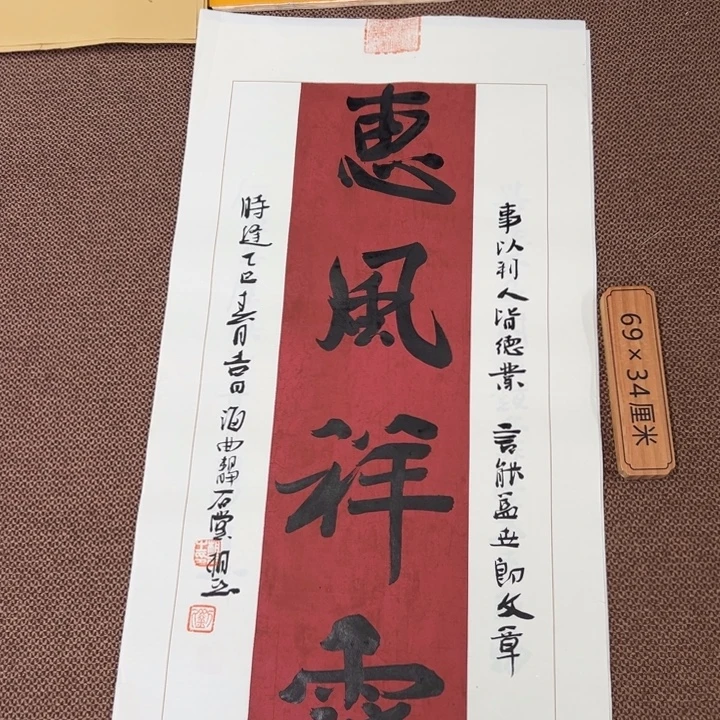 惠風祥
事以利人皆德業 言能益世即文章
時逢乙巳春月吉日 海曲靜石堂
69×34厘米